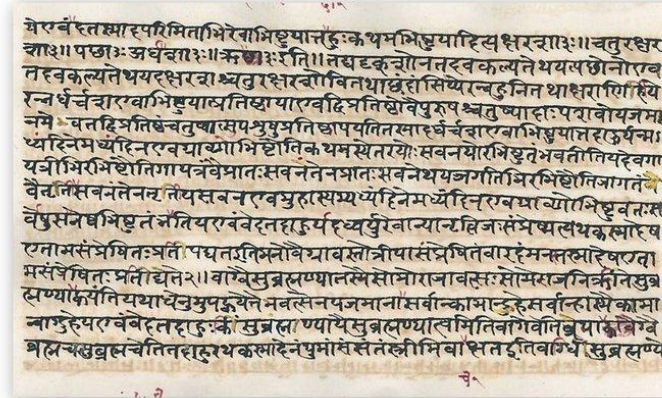 येएवंवेदतस्मादपरिमिताभिरेवाभिष्टुयात्तदाहुःकथमभिष्टुयादित्यक्षरशा३ः॥चतुरक्षर
शा३ः॥पच्छा३ःअर्धर्चशा३ः॥ऋक्शा३ःइति॥तद्यदृक्शोनतदवकल्पतेथयत्पच्छोनोएव
तदवकल्पतेथयदक्षरशश्चतुरक्षरशोवितथाछंदांसिलुप्येरन्बहूनितथाक्षराणिहीये
रन्नर्धर्चशएवाभिष्टुयात्प्रतिष्ठायाएवद्विप्रतिष्ठोवैपुरुषश्चतुष्पादाःपशवोयजमा
नमेवतद्द्विप्रतिष्ठंचतुष्पात्सुपशुषुप्रतिष्ठापयतितस्मादर्धर्चशएवाभिष्टुयात्तदाहुर्यन्म
ध्यंदिनेमध्यंदिनएवग्राव्णोभिष्टौतिकथमस्येतरयोःसवनयोरभिष्टुतंभवतीतियदेवगा
यत्रीभिरभिष्टौतिगायत्रंवैप्रातःसवनंतेनप्रातःसवनेथयज्जगतीभिरभिष्टौतिजागतं
वैतृतीयसवनंतेनतृतीयसवनएवमुहास्यमध्यंदिनेमध्यंदिनएवग्राव्णोभिष्टुवतःसर्वे
षुसवनेष्वभिष्टुतंभवतियएवंवेदतदाहुर्यदध्वर्युरेवान्यानृत्विजःसंप्रेष्यत्यथकस्मादेष
एतामसंप्रेषितःप्रतिपद्यतइतिमनोवैग्रावस्तोत्रीयासंप्रेषितंवाइदंमनस्तस्मादेषएता
मसंप्रेषितःप्रतिपद्यते॥२॥वाग्वैसुब्रह्मण्यातस्यैसोमोराजावत्सःसोमेराजनिक्रीतेसुब्र
ह्मण्यामाह्वयंतियथाधेनुमुपह्वयेत्तेनवत्सेनयजमानायसर्वान्कामान्दुहेसर्वान्हास्मैकामा
न्वाग्दुहेयएवंवेदतदाहुःकिंसुब्रह्मण्यायैसुब्रह्मण्यात्वमितिवागेवेतिब्रूयाद्वाग्वै
ब्रह्मचसुब्रह्मचेतितदाहुरथकस्मादेनंपुमांसंसंतंस्त्रीमिवाचक्षतइतिवाग्घिसुब्रह्मण्ये